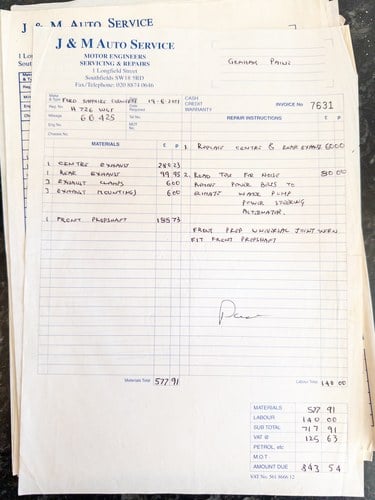 J & M AUTO SERVICE
J & M AUTO SERVICE
MOTOR ENGINEERS
SERVICING & REPAIRS
1 Longfield Street
Southfields SW18 5RD
Fax/Telephone: 020 8874 0646
GRAHAM PAINE
Make & Type FORD SAPPHIRE COSWORTH
Date Required 19-6-2001
CASH
CREDIT
WARRANTY
INVOICE No 7631
Reg. No. H 726
Tel No.
Mileage 68 425
REPAIR INSTRUCTIONS £ P
Eng No.
MOT No.
Chassis No.
MATERIALS £ P
1 REPLACE CENTRE & REAR EXHAUST 60 00
1 CENTRE EXHAUST
1 REAR EXHAUST 99.95
2. ROAD TEST FOR NOISE 80 00
3 EXHAUST CLAMPS 6 00
REMOVE POWER BELTS TO
3 EXHAUST MOUNTINGS 6 00
ELIMINATE WATER PUMP
POWER STEERING
ALTERNATOR.
1 FRONT PROPSHAFT 185 73
FRONT PROP UNIVERSAL JOINT WORN
FIT FRONT PROPSHAFT
Materials Total 577 91
Labour Total 140 00
MATERIALS 577 91
LABOUR 140 00
SUB TOTAL 717 91
VAT @ 125 63
PETROL, etc
M.O.T
AMOUNT DUE 843 54
VAT No. 561 8666 12